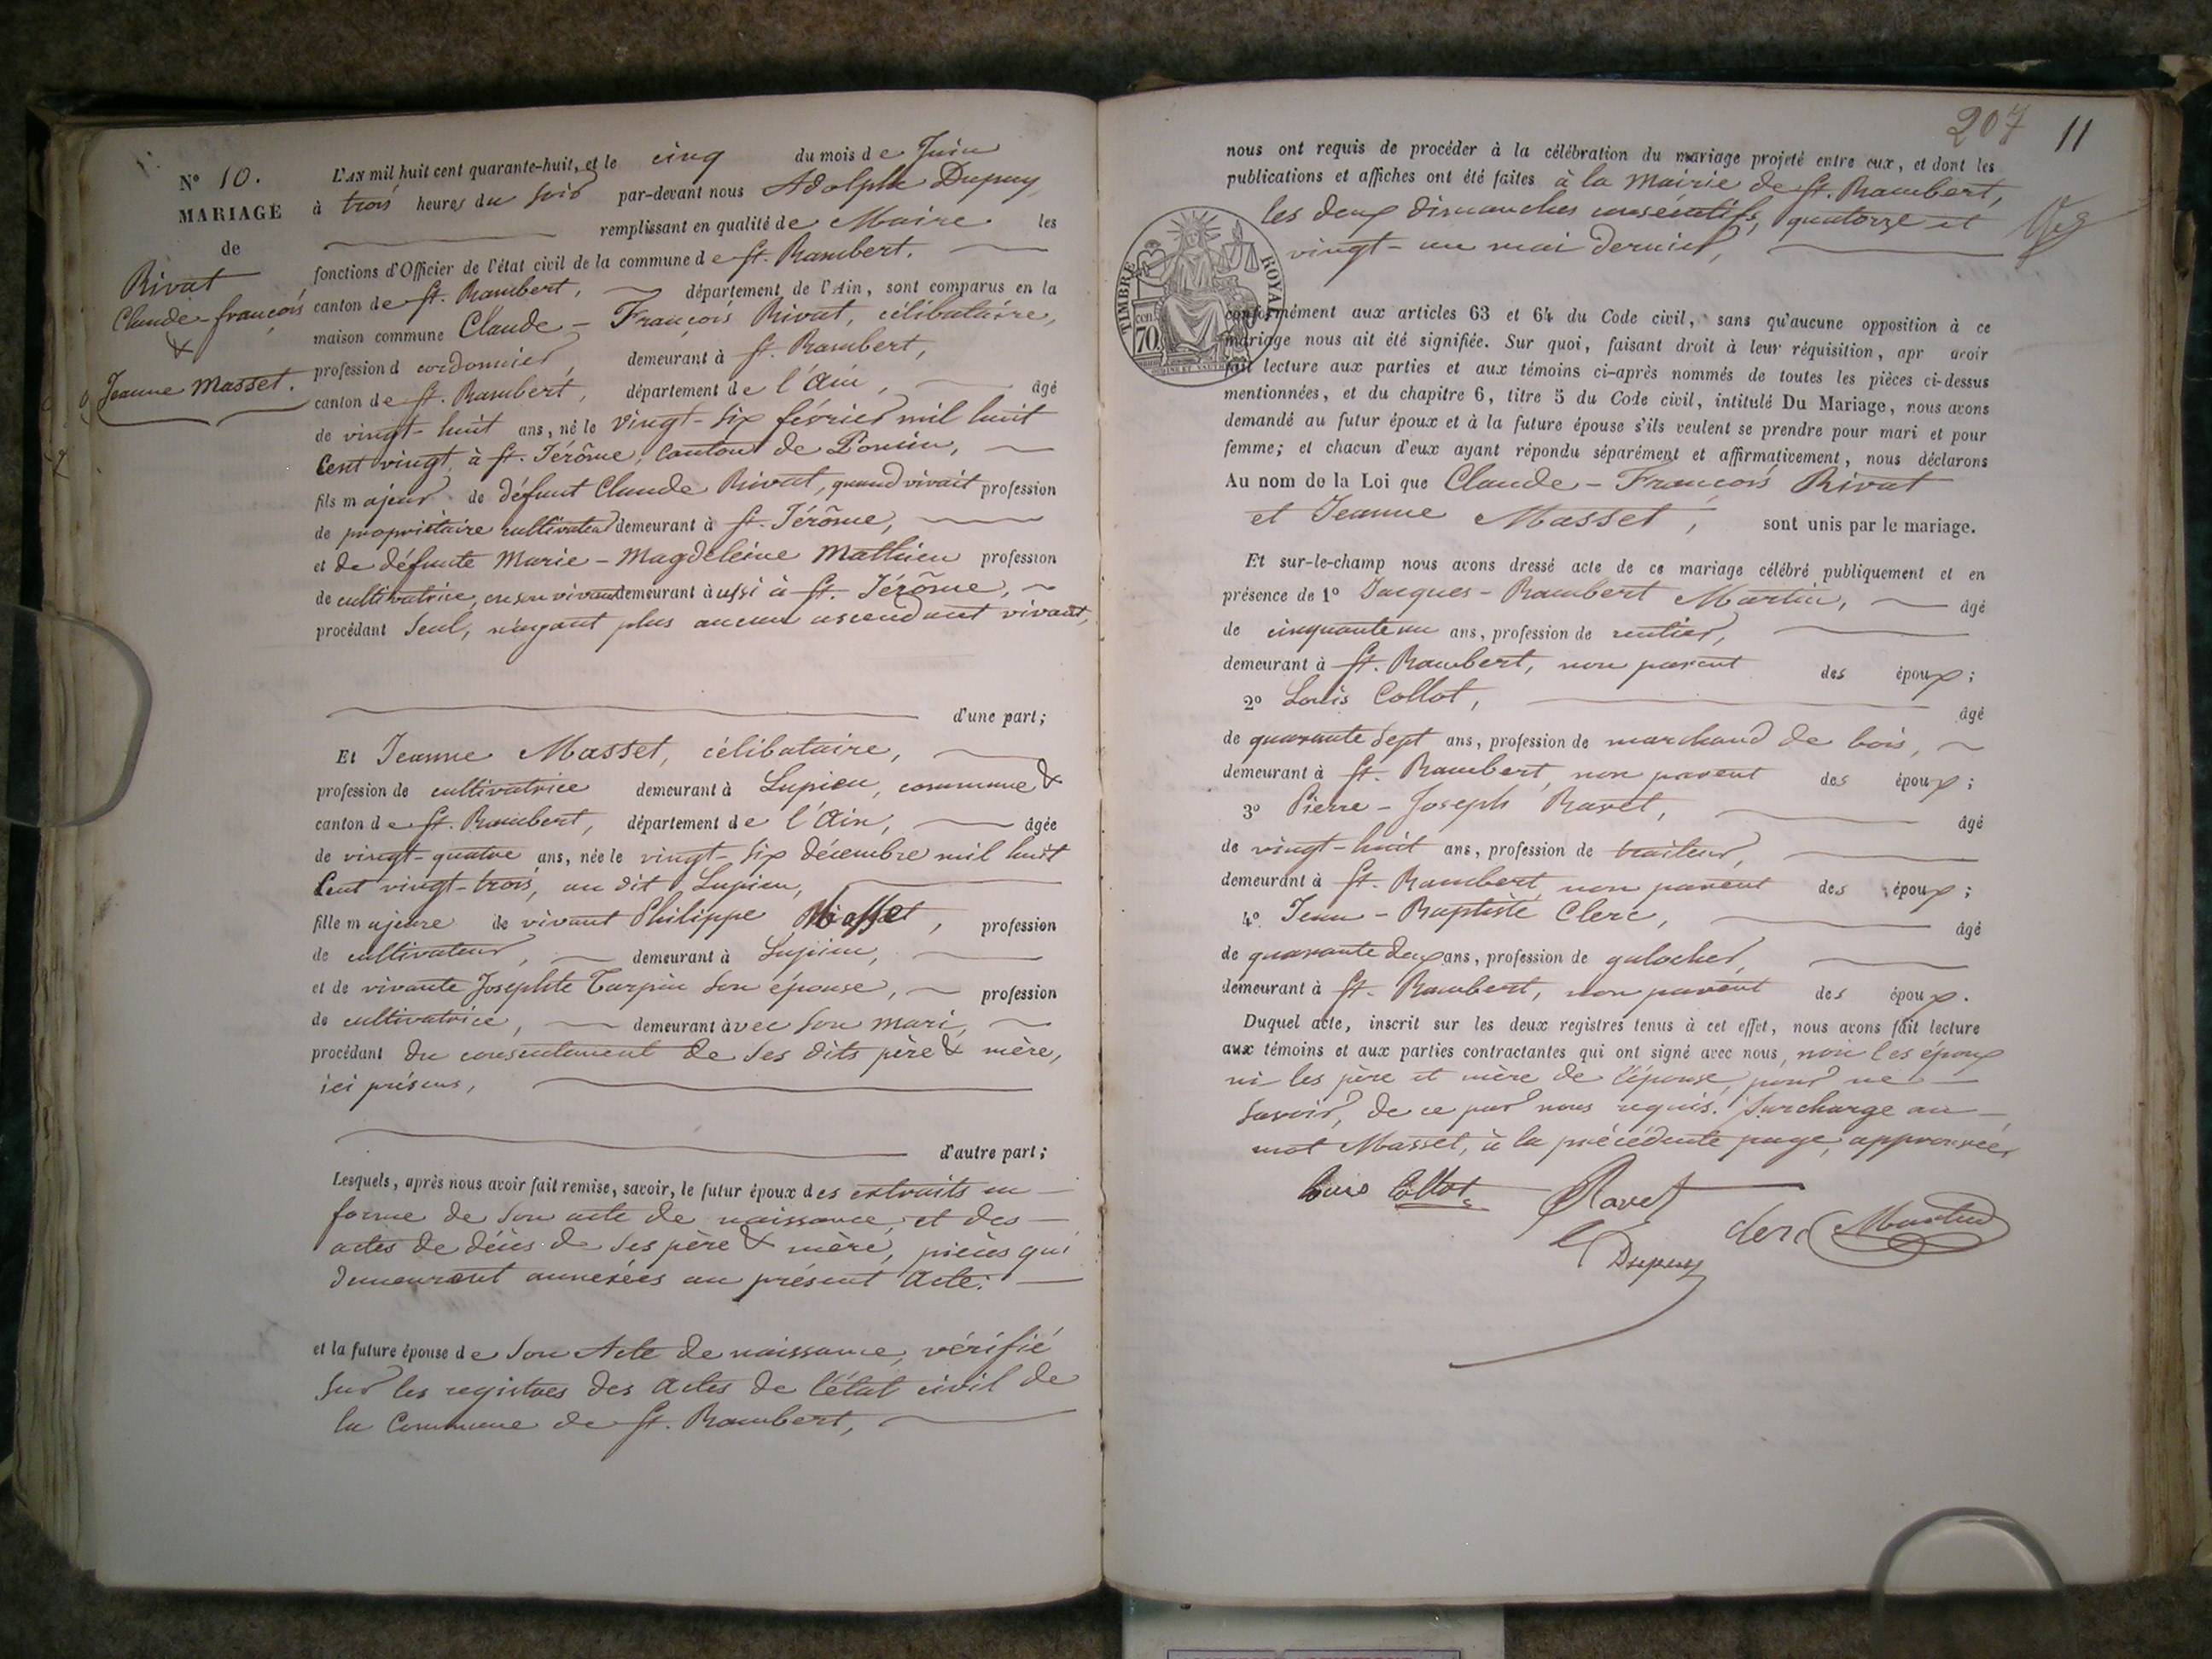 N° 10.
MARIAGE
de
Rivat
Claude-françois
&
Jeanne Masset.
L'AN mil huit cent quarante-huit, et le cinq du mois de Juin
à trois heures du soir par-devant nous Adolphe Dupuy
remplissant en qualité de Maire les
fonctions d'Officier de l'état civil de la commune de St. Rambert.
canton de St. Rambert, département de l'Ain, sont comparus en la
maison commune Claude-François Rivat, célibataire,
profession d cordonnier, demeurant à St. Rambert,
canton de St. Rambert, département de l'Ain, âgé
de vingt-huit ans, né le vingt-six février mil huit
Cent vingt, à St. Jérôme, Canton de Poncin,
fils majeur de défunt Claude Rivat, quand vivait profession
de propriétaire cultivateur demeurant à St. Jérôme,
et de défunte Marie-Magdeleine Mathieu profession
de cultivatrice, en son vivant demeurant aussi à St. Jérôme,
procédant seul, n'ayant plus aucun ascendant vivant,
d'une part;
Et Jeanne Masset, célibataire,
profession de cultivatrice demeurant à Lupieu, commune &
canton de St. Rambert, département de l'Ain, âgée
de vingt-quatre ans, née le vingt-six décembre mil huit
Cent vingt-trois, au dit Lupieu,
fille majeure de vivant Philippe Masset, profession
de cultivateur, demeurant à Lupieu,
et de vivante Josephte Turpin son épouse, profession
de cultivatrice, demeurant avec son mari,
procédant du consentement de ses dits père & mère,
ici présens,
d'autre part;
Lesquels, après nous avoir fait remise, savoir, le futur époux des extraits en
forme de son acte de naissance et des
actes de décès de ses père & mère, pièces qui
demeurent annexées au présent Acte.
et la future épouse de son Acte de naissance, vérifié
sur les registres des Actes de l'état civil de
la Commune de St. Rambert,
207 11
nous ont requis de procéder à la célébration du mariage projeté entre eux, et dont les
publications et affiches ont été faites à la Mairie de St. Rambert,
les deux dimanches consécutifs, quatorze et
vingt-un mai dernier,
TIMBRE ROYAL
cen.
70
conformément aux articles 63 et 64 du Code civil, sans qu'aucune opposition à ce
mariage nous ait été signifiée. Sur quoi, faisant droit à leur réquisition, apr avoir
fait lecture aux parties et aux témoins ci-après nommés de toutes les pièces ci-dessus
mentionnées, et du chapitre 6, titre 5 du Code civil, intitulé Du Mariage, nous avons
demandé au futur époux et à la future épouse s'ils veulent se prendre pour mari et pour
femme; et chacun d'eux ayant répondu séparément et affirmativement, nous déclarons
Au nom de la Loi que Claude-François Rivat
et Jeanne Masset, sont unis par le mariage.
Et sur-le-champ nous avons dressé acte de ce mariage célébré publiquement et en
présence de 1° Jacques-Rambert Martin, âgé
de cinquante un ans, profession de rentier,
demeurant à St. Rambert, non parent des époux;
2° Louis Collot, âgé
de quarante sept ans, profession de marchand de bois,
demeurant à St. Rambert, non parent des époux;
3° Pierre-Joseph Ravet, âgé
de vingt-huit ans, profession de traiteur,
demeurant à St. Rambert non parent des époux;
4° Jean-Baptiste Clerc, âgé
de quarante deux ans, profession de galocher,
demeurant à St. Rambert, non parent des époux.
Duquel acte, inscrit sur les deux registres tenus à cet effet, nous avons fait lecture
aux témoins et aux parties contractantes qui ont signé avec nous, non les époux
ni les père et mère de l'épouse, pour ne
savoir, de ce par nous requis. Surcharge au
mot Masset, à la précédente page, approuvée,
Louis Collot Ravet
Clerc Martin
Dupuy